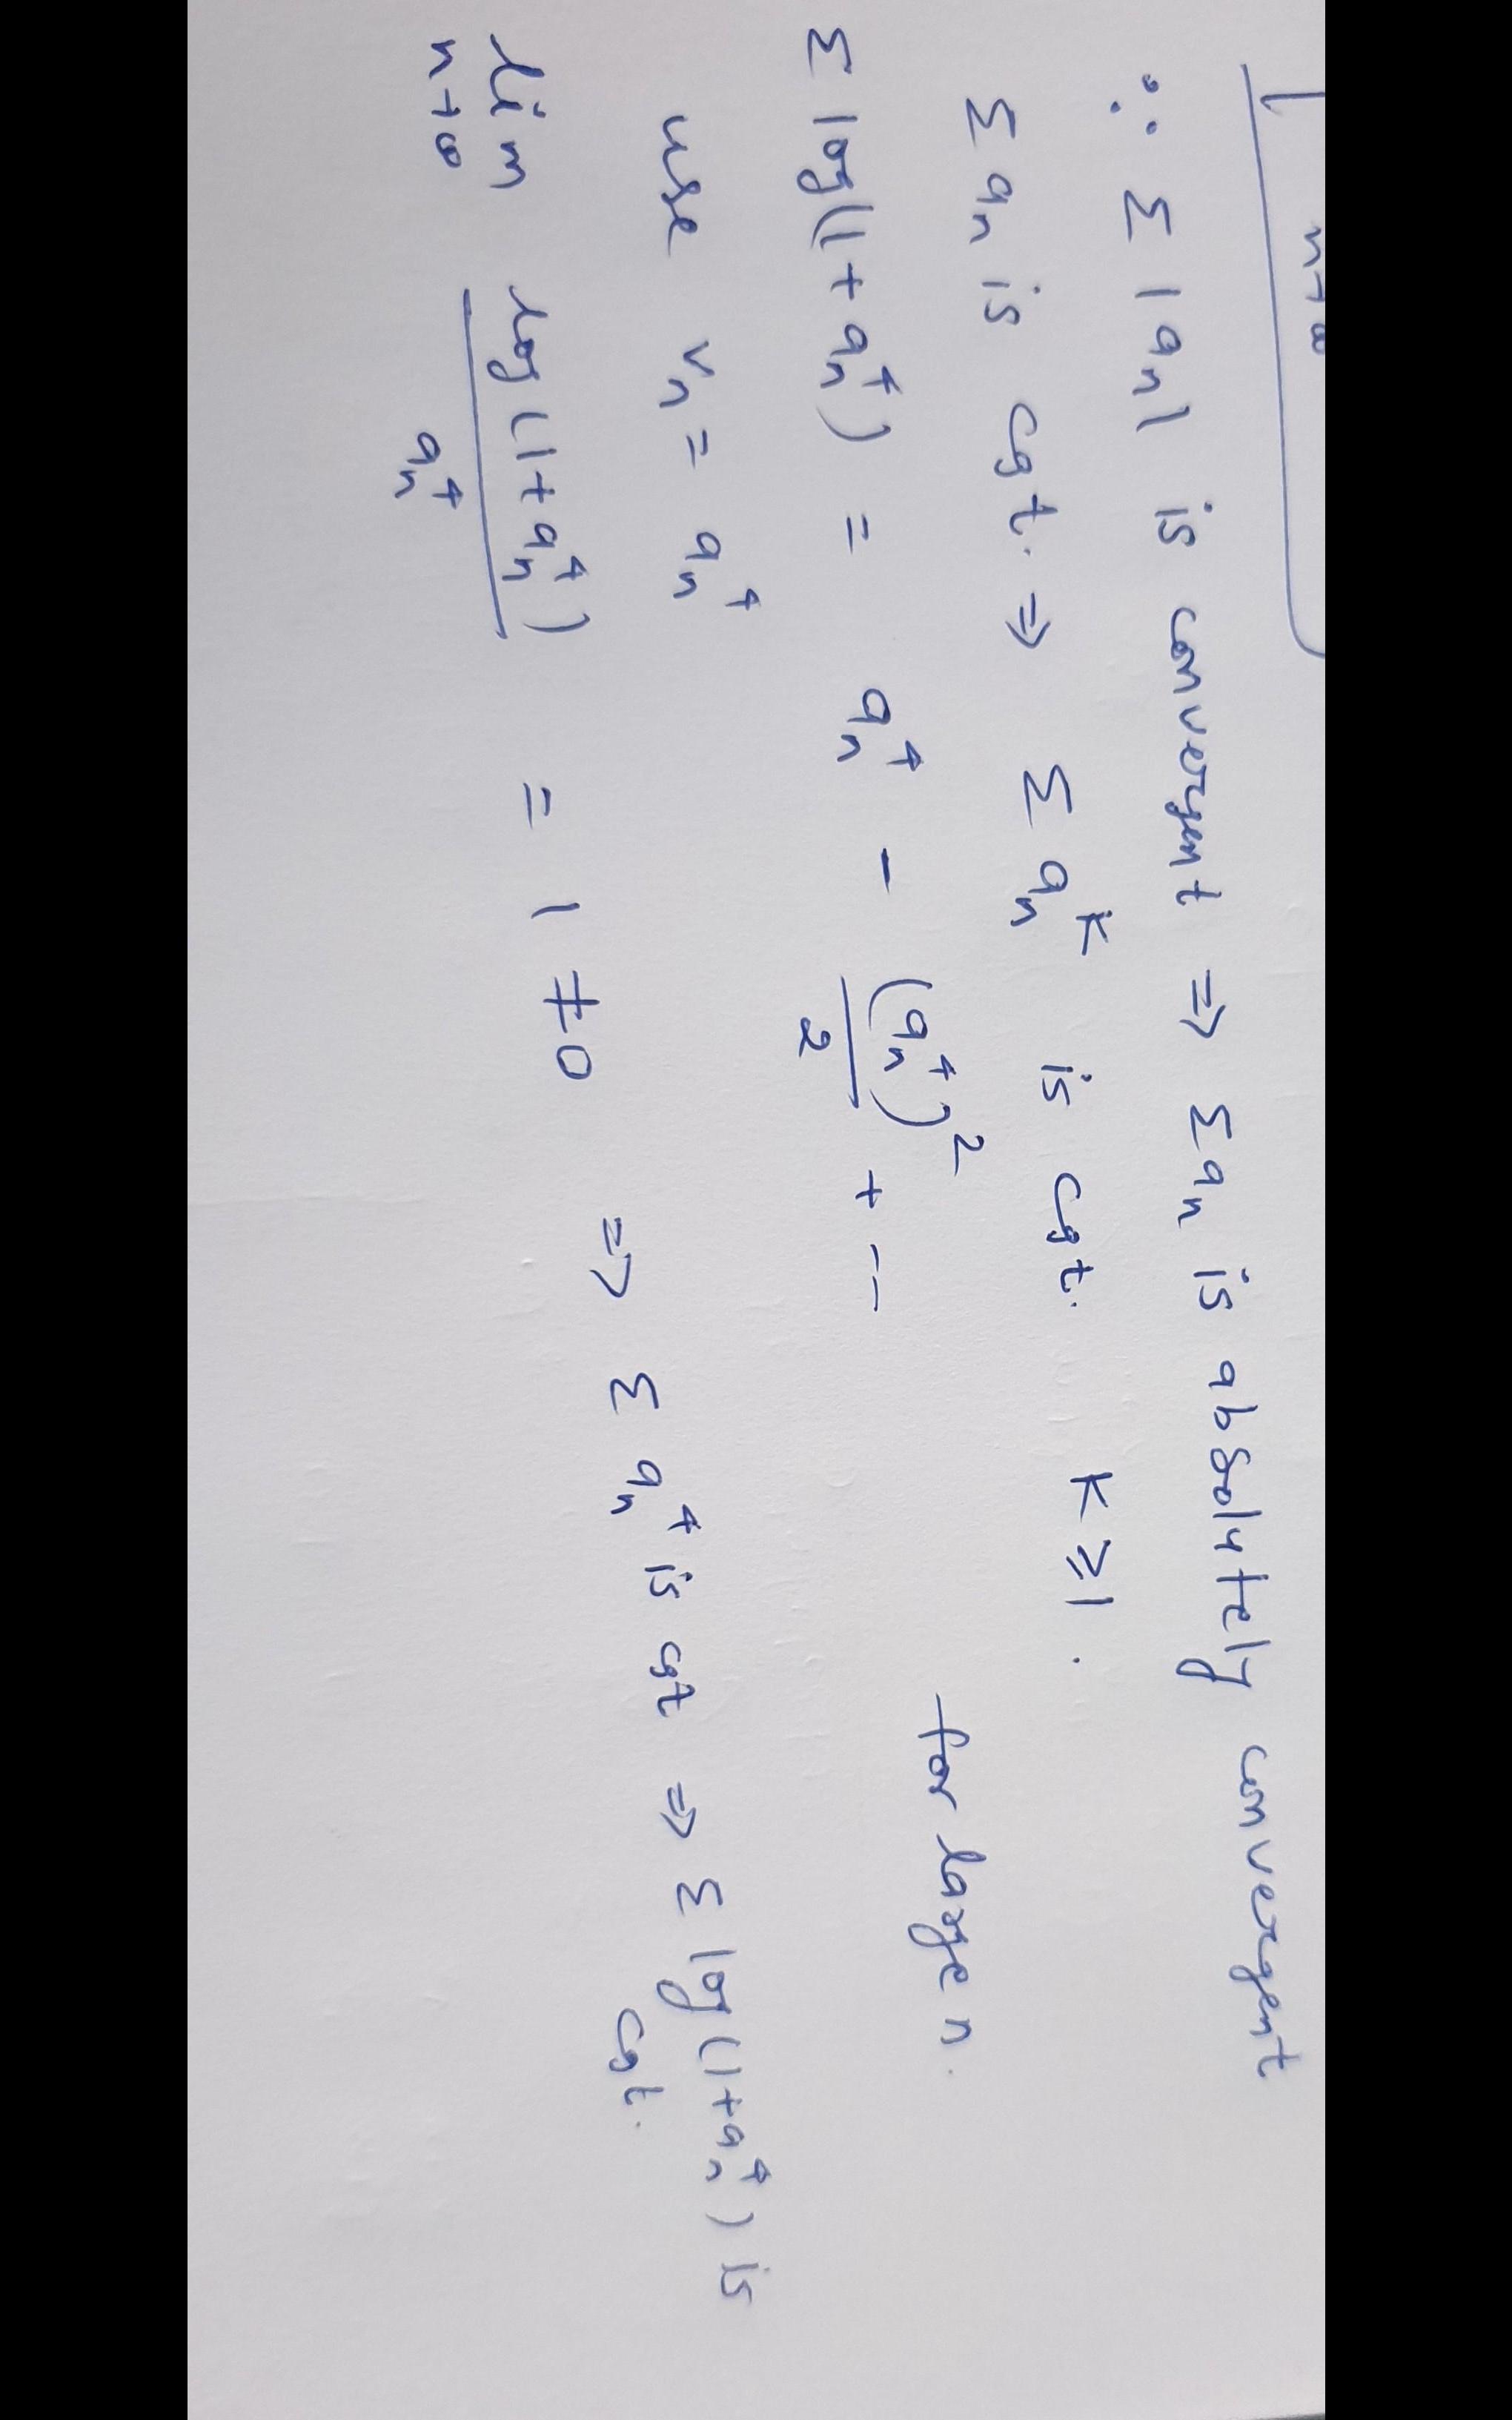 n→∞
∵ Σ |aₙ| is convergent ⇒ Σ aₙ is absolutely convergent
Σ aₙ is cgt. ⇒ Σ aₙᵏ is cgt. K ≥ 1.
Σ log(1 + aₙ⁴) = aₙ⁴ - (aₙ⁴)²/2 + -- for large n.
use vₙ = aₙ⁴
lim n→∞ log(1+aₙ⁴)/aₙ⁴ = 1 ≠ 0 ⇒ Σ aₙ⁴ is cgt ⇒ Σ log(1+aₙ⁴) is cgt.